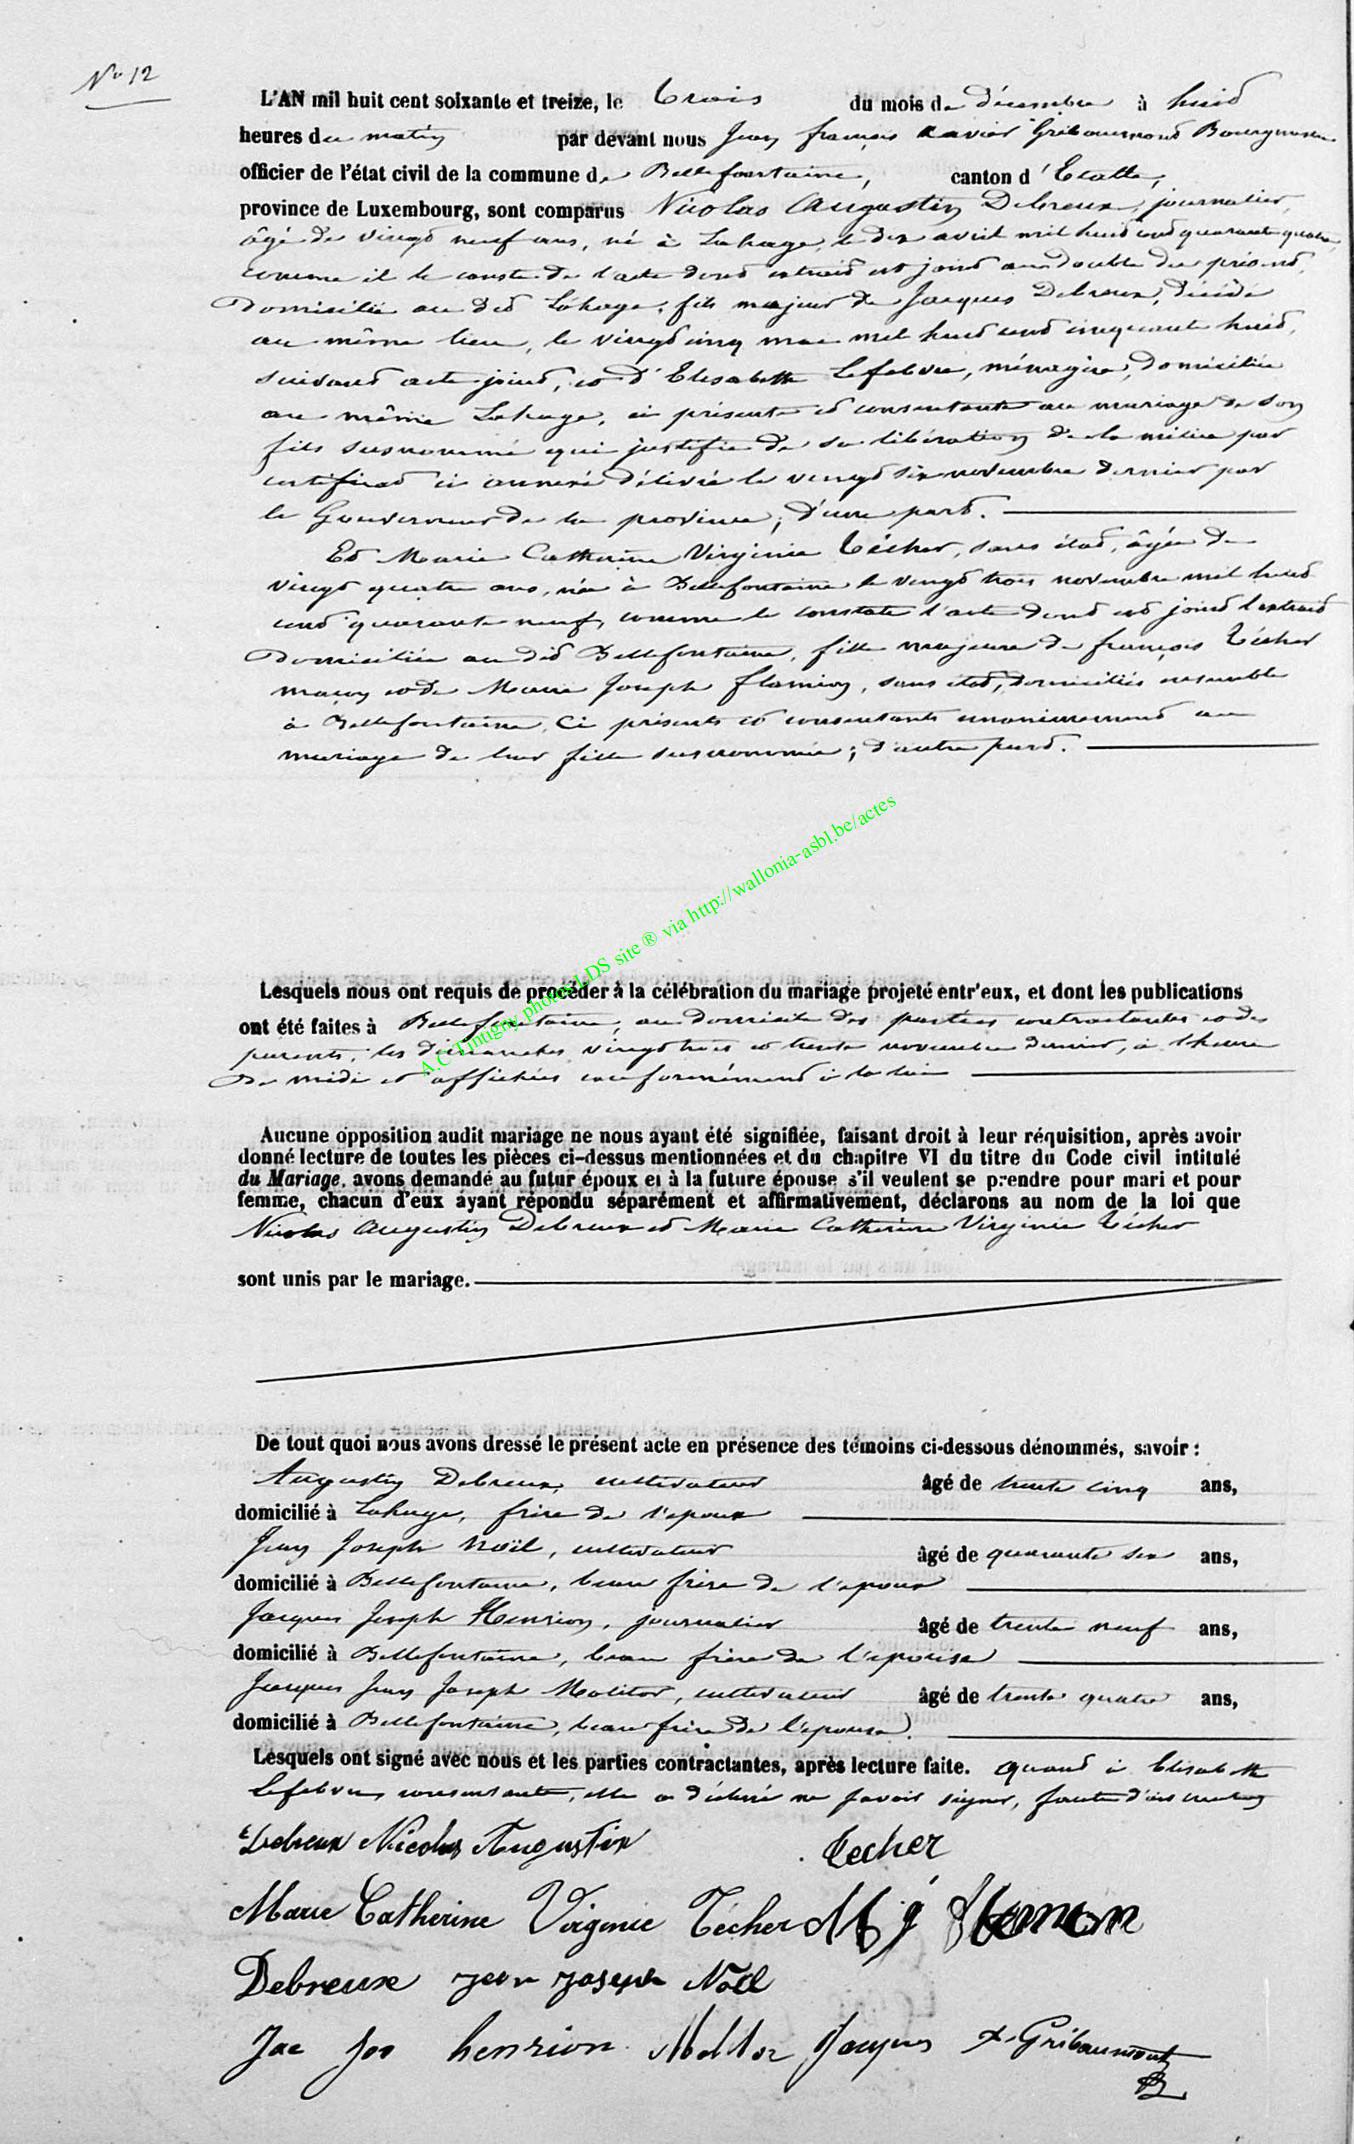 No 12
L'AN mil huit cent soixante et treize, le trois du mois de décembre à huit
heures du matin par devant nous Jean françois xavier Gribaumont Bourgmestre
officier de l'état civil de la commune de Bellefontaine, canton d'Etalle,
province de Luxembourg, sont comparus Nicolas Augustin Debreux, journalier,
âgé de vingt neuf ans, né à Lahage, le dix avril mil huit cent quarante quatre,
comme il le conste de l'acte dont extrait est joint au double du présent,
Domicilié au dit Lahage, fils majeur de Jacques Debreux, décédé
au même lieu, le vingt cinq mai mil huit cent cinquante huit,
suivant acte joint, et d'Elisabeth Lefebvre, ménagère, domiciliée
au même Lahage, ci présente et consentante au mariage de son
fils susnommé qui justifie de sa libération de la milice par
certificat ci annexé délivré le vingt six novembre dernier par
le Gouverneur de la province; d'une part.
Et Marie Catherine Virginie Técher, sans état, âgée de
vingt quatre ans, née à Bellefontaine le vingt trois novembre mil huit
cent quarante neuf, comme le constate l'acte dont est joint l'extrait
Domiciliée au dit Bellefontaine, fille majeure de françois Técher
maçon et de Marie Joseph Flamion, sans état, domiciliés ensemble
à Bellefontaine, Ci présents et consentants unanimement au
mariage de leur fille susnommée; d'autre part.
A.C Tintigny photos LDS site ® via http://wallonia-asbl.be/actes
Lesquels nous ont requis de procéder à la célébration du mariage projeté entr'eux, et dont les publications
ont été faites à Bellefontaine, au domicile des parties contractantes et des
parents, les dimanches vingt trois et trente novembre dernier, à l'heure
De midi et affichées conformément à la loi
Aucune opposition audit mariage ne nous ayant été signifiée, faisant droit à leur réquisition, après avoir
donné lecture de toutes les pièces ci-dessus mentionnées et du chapitre VI du titre du Code civil intitulé
du Mariage, avons demandé au futur époux et à la future épouse s'il veulent se prendre pour mari et pour
femme, chacun d'eux ayant répondu séparément et affirmativement, déclarons au nom de la loi que
Nicolas Augustin Debreux et Marie Catherine Virginie Técher
sont unis par le mariage.
De tout quoi nous avons dressé le présent acte en présence des témoins ci-dessous dénommés, savoir :
Augustin Debreux, cultivateur âgé de trente cinq ans,
domicilié à Lahage, frère de l'époux
Jean Joseph Noël, cultivateur âgé de quarante six ans,
domicilié à Bellefontaine, beau frère de l'époux
Jacques Joseph Henrion, journalier âgé de trente neuf ans,
domicilié à Bellefontaine, beau frère de l'épouse
Jacques Jean Joseph Molitor, cultivateur âgé de trente quatre ans,
domicilié à Bellefontaine, beau frère de l'épouse).
Lesquels ont signé avec nous et les parties contractantes, après lecture faite. quant à Elisabeth
Lefebvre consentante, elle a déclaré ne savoir signer, faute d'
Debreux Nicolas Augustin Techer
Marie Catherine Virginie Técher M j flamion
Debreux jean joseph Noël
Jac Jos henrion Molitor Jacques x. Gribaumont